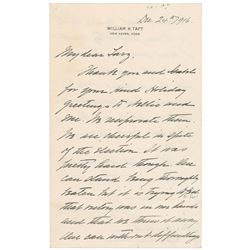 WILLIAM H. TAFT
NEW HAVEN, CONN
Dec 24th 1916.
My dear
Thank you and
for your kind Holiday
Greetings to Nellie and
me. We reciprocate them
We are cheerful in spite
of the election. It was
pretty hard though. One
can stand being thoroughly
beaten but it is trying to find
that victory was in our hands
and that we threw it away
One can without difficulty